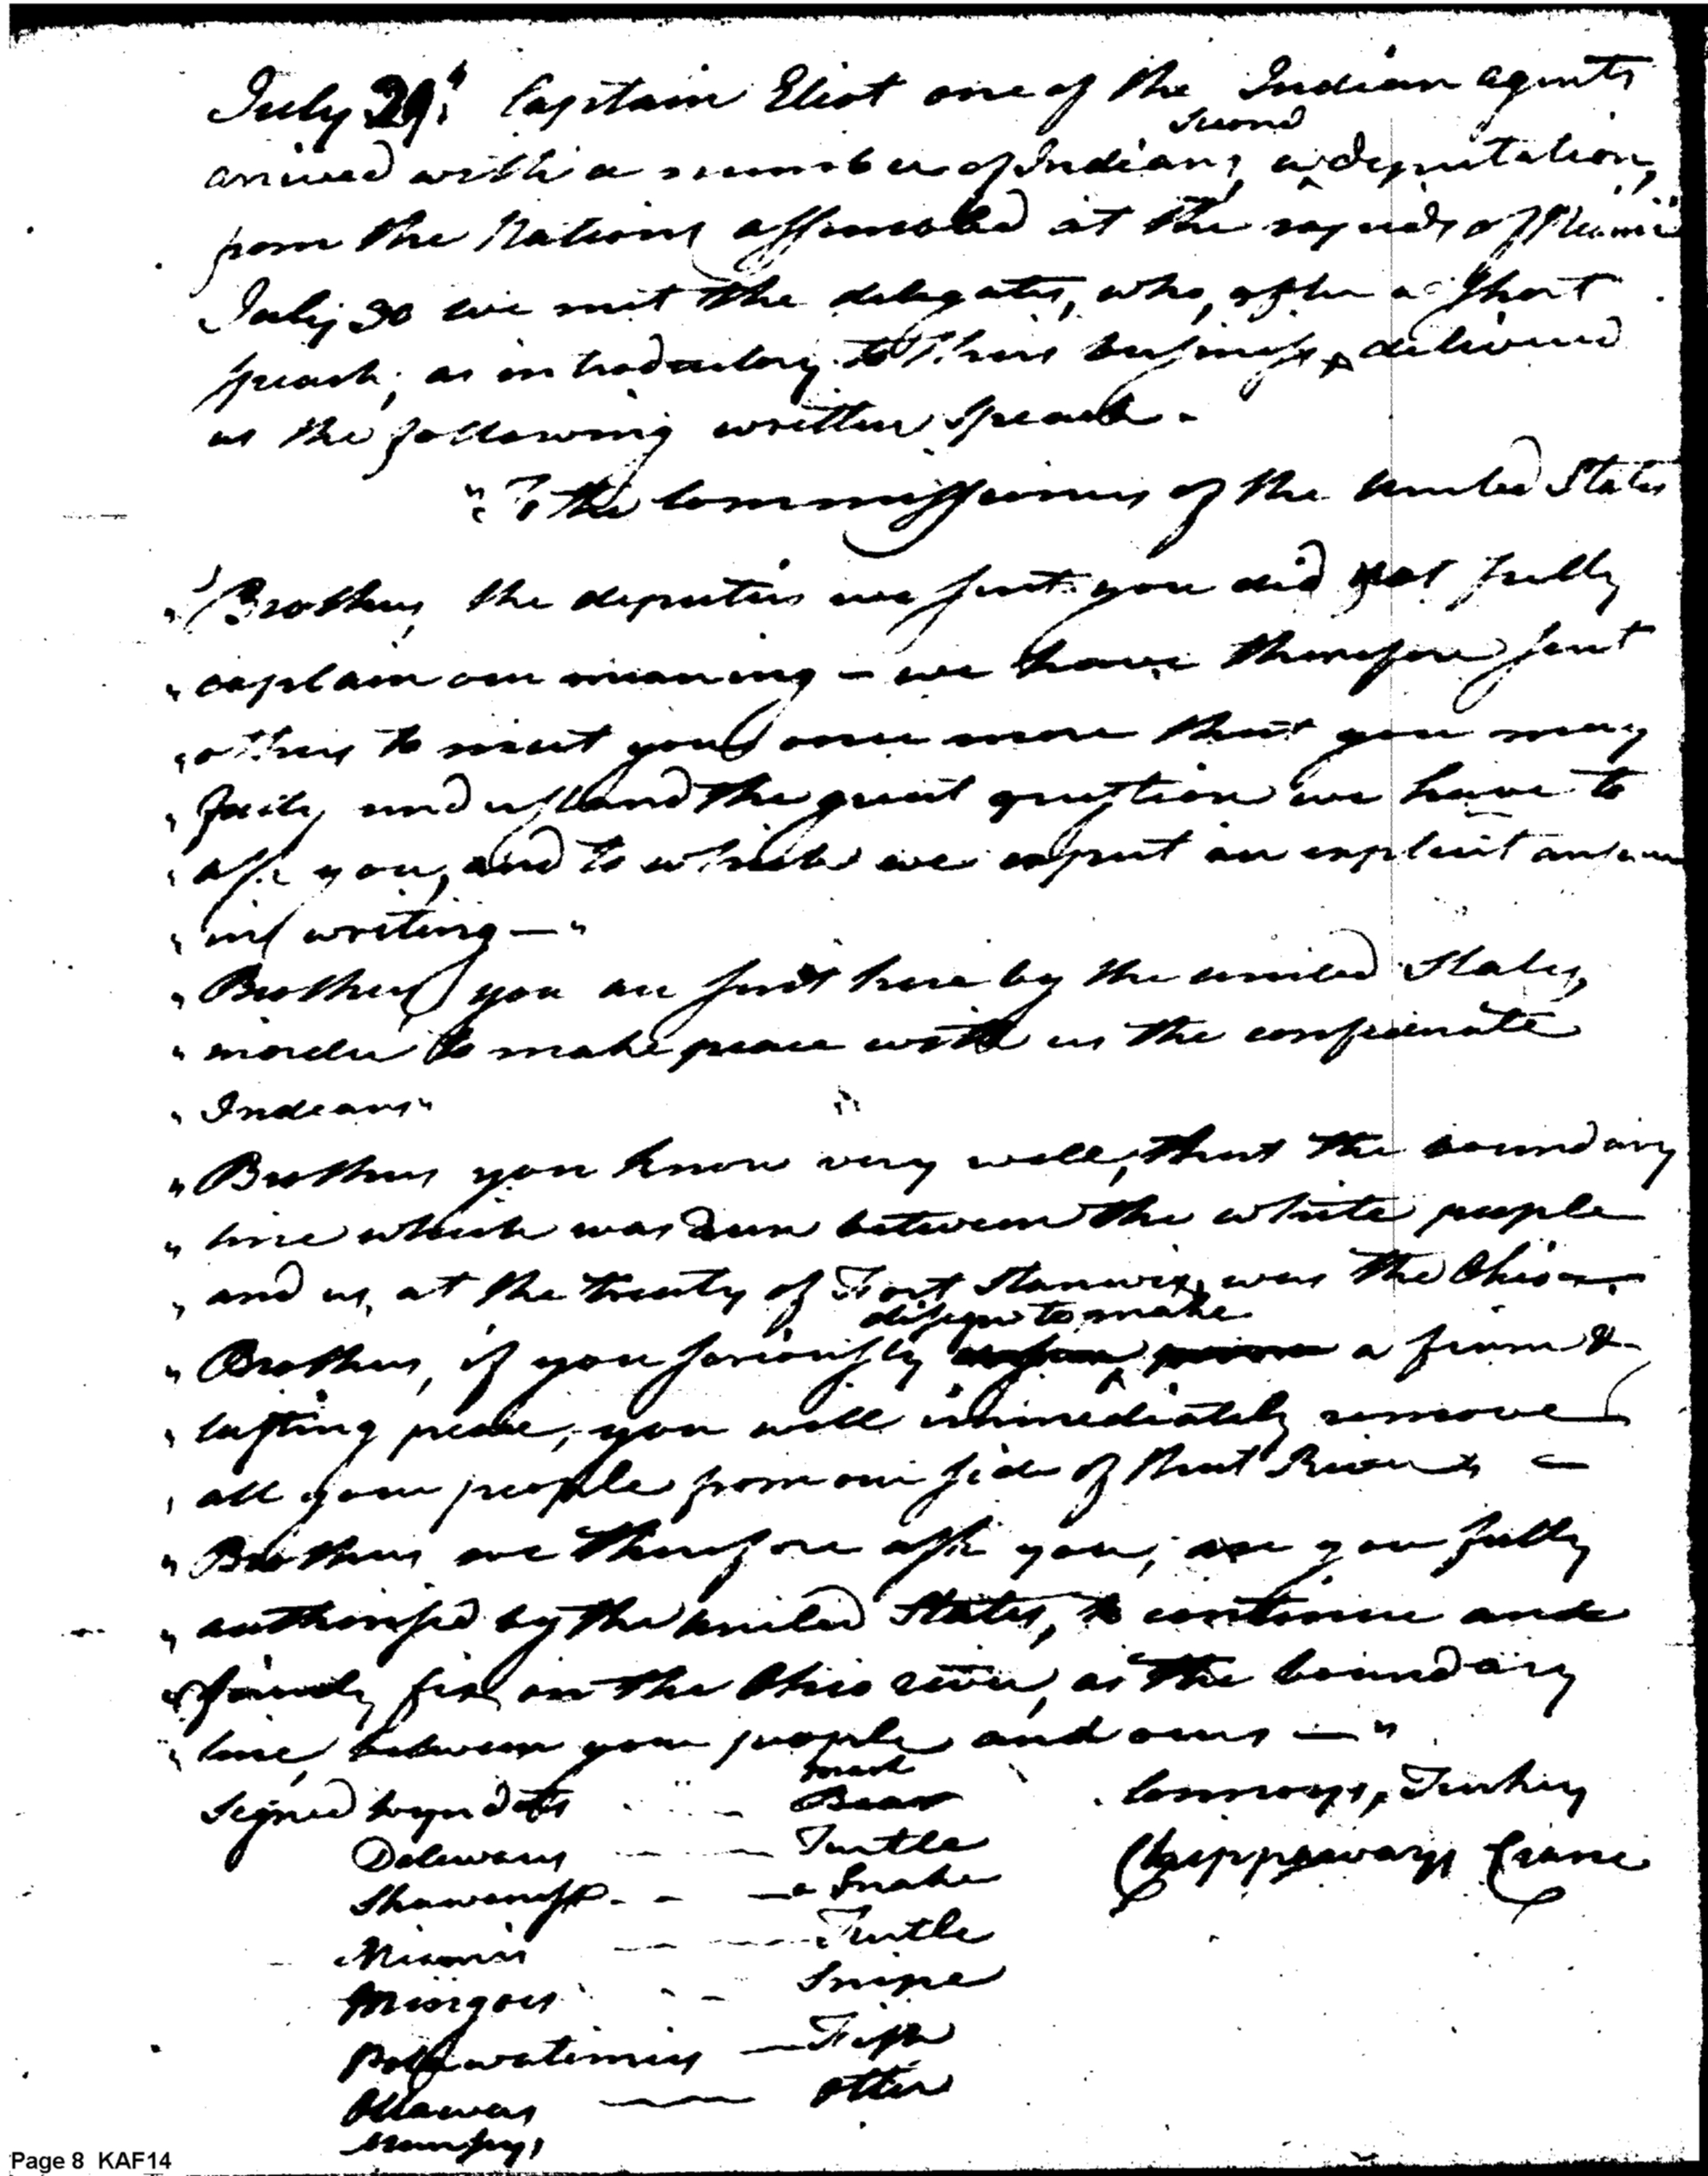 July 29th Captain Eliot one of the Indian agents
second
arrived with a number of Indians, a deputation,
from the Nations assembled at the rapids of Miami
July 30 we met the delegates, who, after a short
speach, as introductory to their business, delivered
us the following written speach -
"To the Commissioners of the United States
"Brothers, the deputies we sent you did not fully
"explain our meaning - we have therefore sent
"others to meet you once more that you may
"fully understand the great question we have to
"ask you, and to which we expect an explicit answer
"in writing - "
"Brothers you are sent here by the united States,
"inorder to make peace with us the confederate
"Indeans"
"Brothers you know very well, that the boundary
"line which was run between the white people
"and us, at the treaty of Fort Stanwix, was the Ohio
design to make
"Brothers, if you seriously a firm &
"lasting peace, you will immediately remove
"all your people from our side of that River
"Brothers we therefore ask you, are you fully
"authorised by the united States, to continue and
"firmly fix on the Ohio river, as the boundary
"line, between your people and ours - "
mark
Signed Wyndots Bear Connoys, Turkey
Delawars Turtle Chippaways Crane
Shawaness a Snake
Miamis Turtle
Mingoes Snipe
Pottawatimies Fish
Ottawas Otter
Munseys
Page 8 KAF14